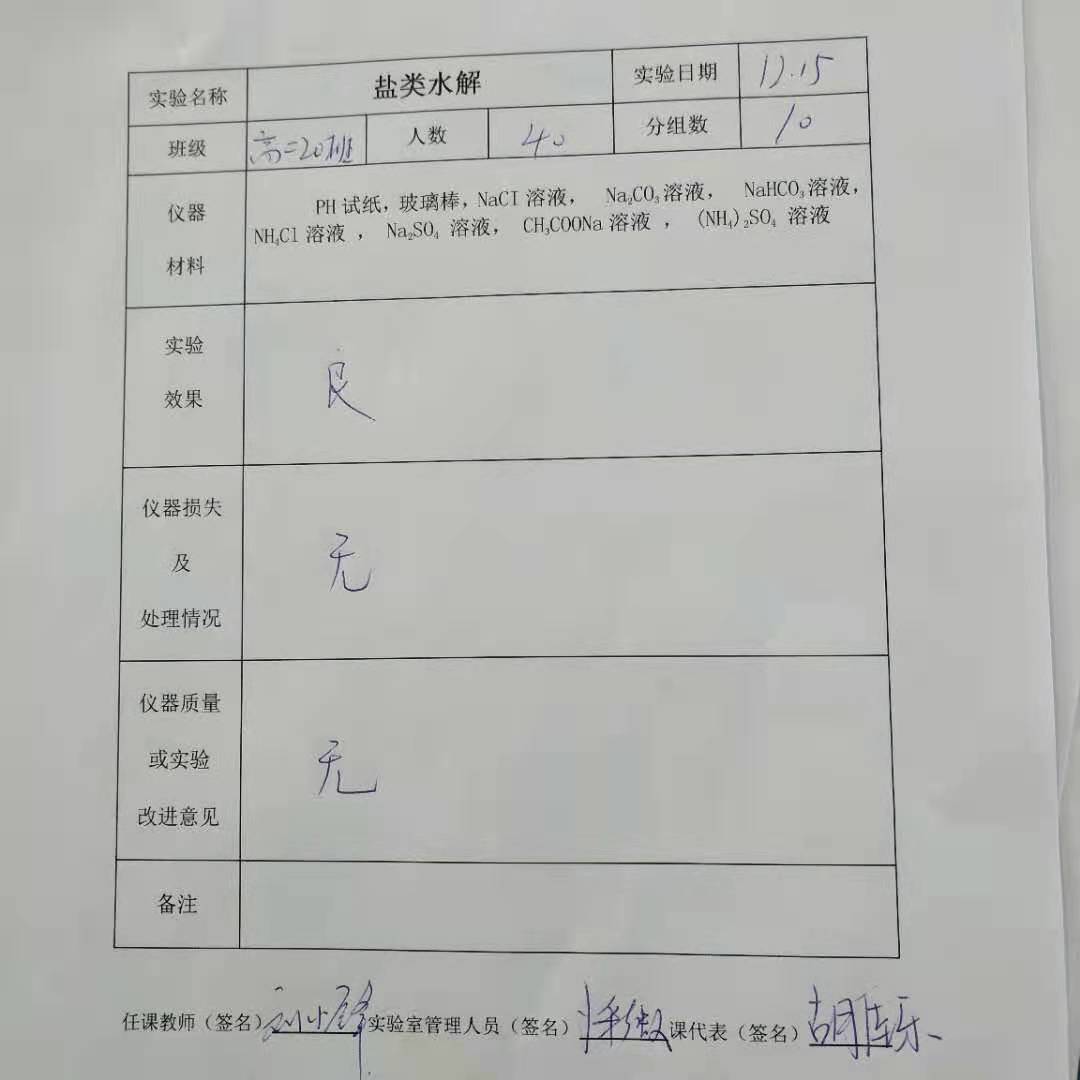 实验名称 盐类水解 实验日期 12.15
班级 高二20班 人数 40 分组数 10
仪器
材料
PH试纸，玻璃棒，NaCI溶液， Na₂CO₃溶液， NaHCO₃溶液，
NH₄Cl溶液 ， Na₂SO₄ 溶液， CH₃COONa溶液 ， (NH₄)₂SO₄ 溶液
实验
效果
良
仪器损失
及
处理情况
无
仪器质量
或实验
改进意见
无
备注
任课教师（签名） 实验室管理人员（签名） 课代表（签名）